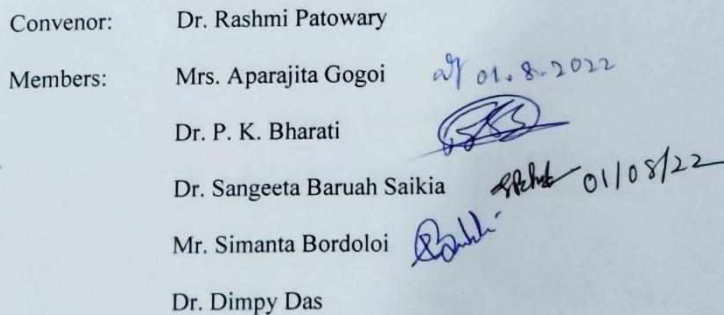 Convenor: Dr. Rashmi Patowary
Members: Mrs. Aparajita Gogoi 01.8.2022
Dr. P. K. Bharati
Dr. Sangeeta Baruah Saikia 01/08/22
Mr. Simanta Bordoloi
Dr. Dimpy Das